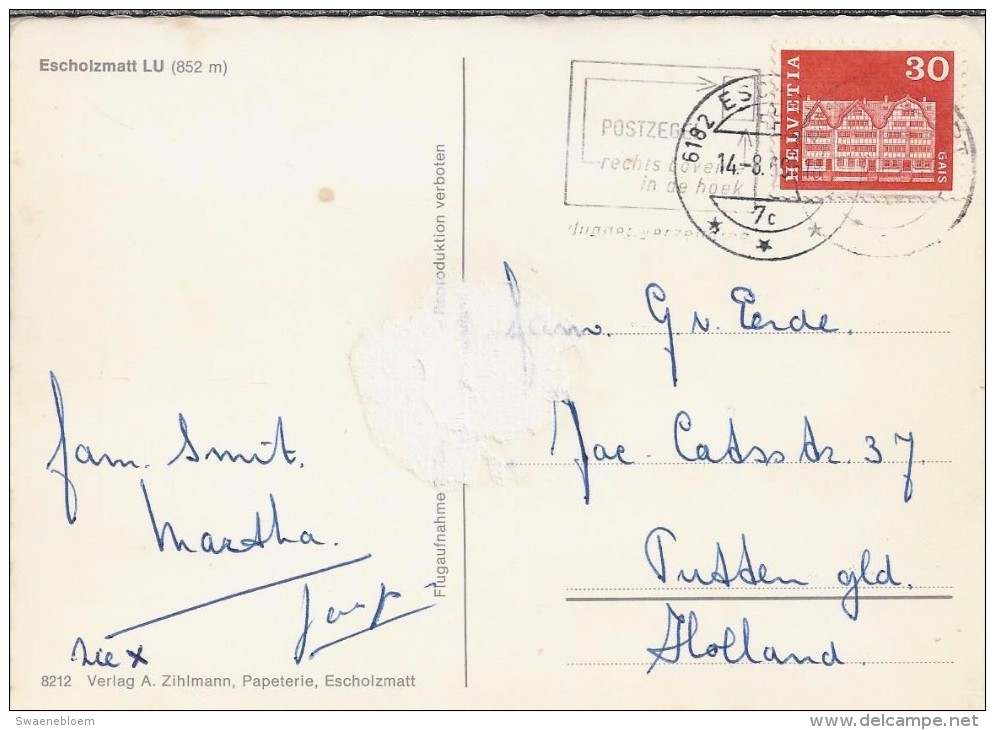 Escholzmatt LU (852 m)
HELVETIA
30
GAIS
6182 ESC
14.-8.6
7c
POSTZEGEL
rechts boven
in de hoek
Flugaufnahme
Reproduktion verboten
Fam. G v. Eerde.
Jac. Catsstr. 37
Putten gld.
Holland.
fam. Smit.
Martha.
Jaap
zie x
8212 Verlag A. Zihlmann, Papeterie, Escholzmatt
Swaenebloem
www.delcampe.net